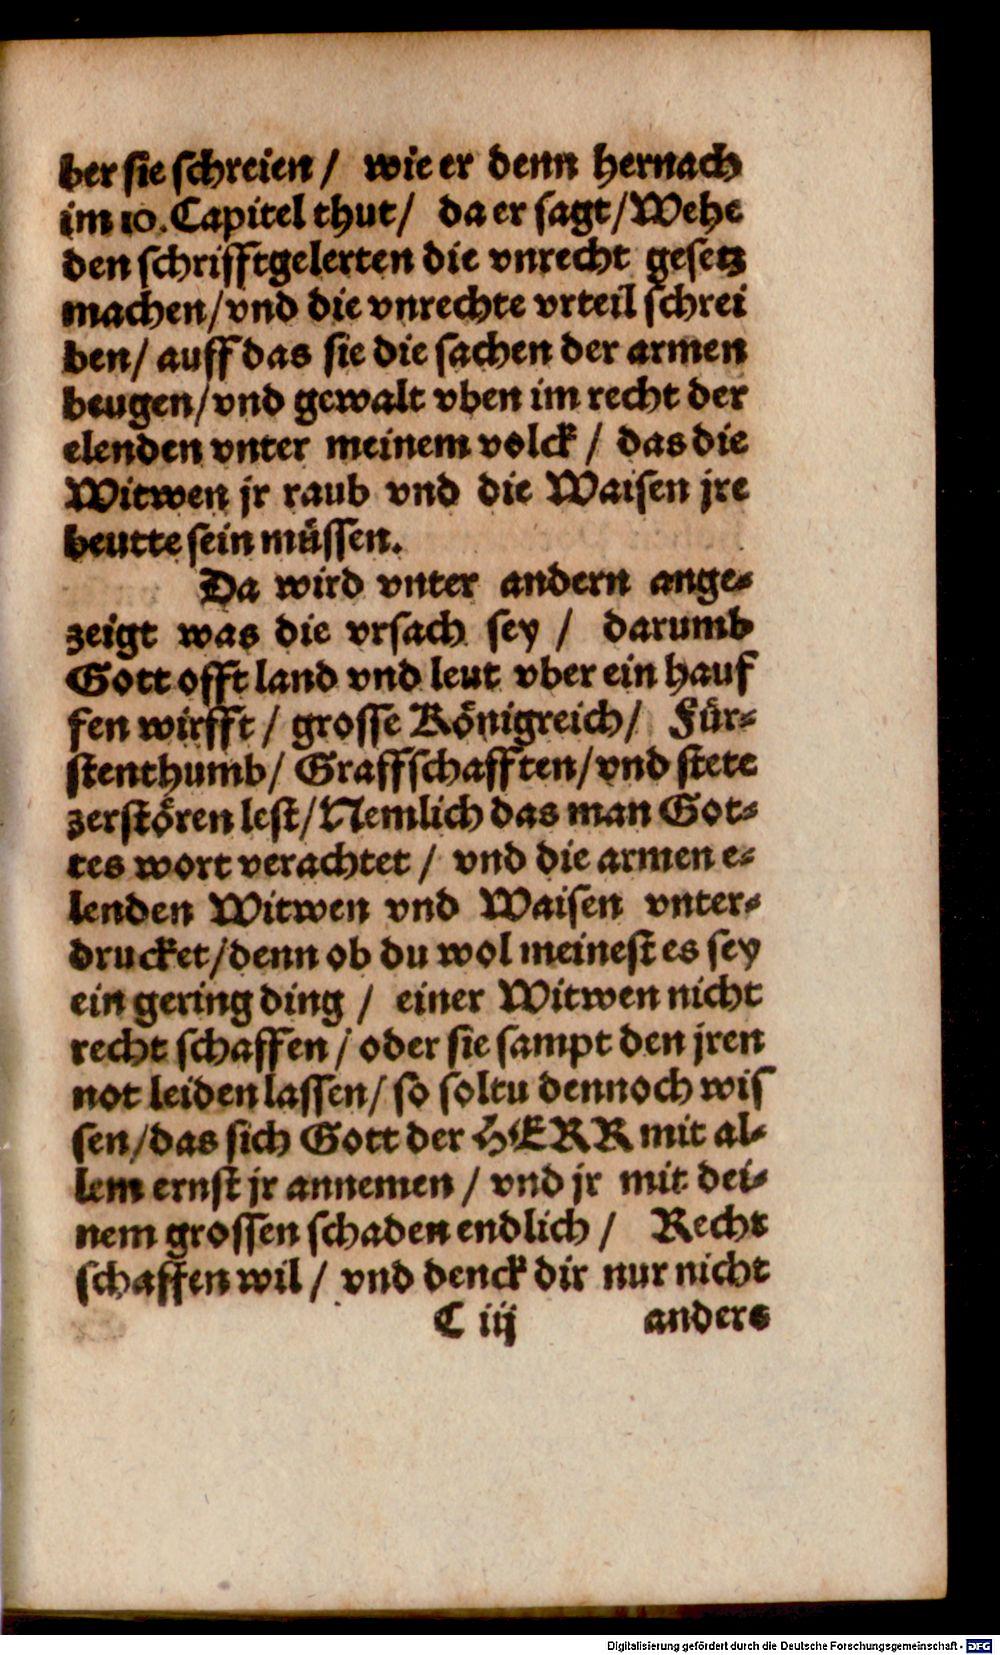 ber sie schreien / wie er denn hernach
im 10. Capitel thut / da er sagt / Wehe
den schrifftgelerten die vnrecht gesetz
machen / vnd die vnrechte vrteil schrei
ben / auff das sie die sachen der armen
beugen / vnd gewalt vben im recht der
elenden vnter meinem volck / das die
Witwen jr raub vnd die Waisen jre
beutte sein müssen.
Da wird vnter andern ange-
zeigt was die vrsach sey / darumb
Gott offt land vnd leut vber ein hauf
fen wirfft / grosse Königreich / Für-
stenthumb / Graffschafften / vnd stete
zerstören lest / Nemlich das man Got-
tes wort verachtet / vnd die armen e-
lenden Witwen vnd Waisen vnter-
drucket / denn ob du wol meinest es sey
ein gering ding / einer Witwen nicht
recht schaffen / oder sie sampt den jren
not leiden lassen / so soltu dennoch wis
sen / das sich Gott der HERR mit al-
lem ernst jr annemen / vnd jr mit dei-
nem grossen schaden endlich / Recht
schaffen wil / vnd denck dir nur nicht
C iij anders
Digitalisierung gefördert durch die Deutsche Forschungsgemeinschaft - DFG